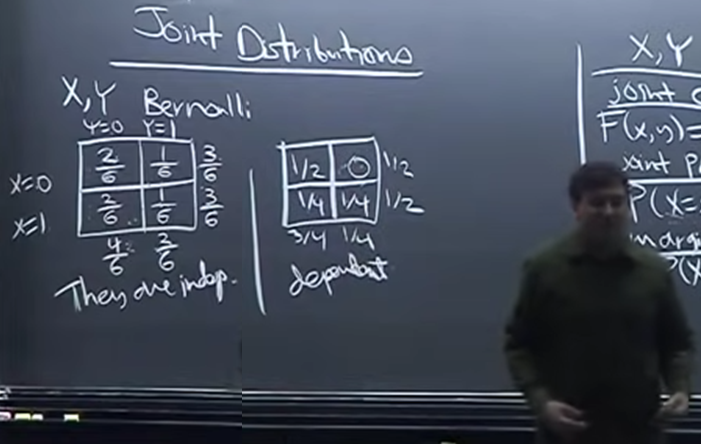 Joint Distributions
X,Y Bernoulli
Y=0 Y=1
X=0 2/6 1/6 3/6
X=1 2/6 1/6 3/6
4/6 2/6
They are indep.
1/2 0 1/2
1/4 1/4 1/2
3/4 1/4
dependent
X,Y
joint
F(x,y)=
joint
P(X=